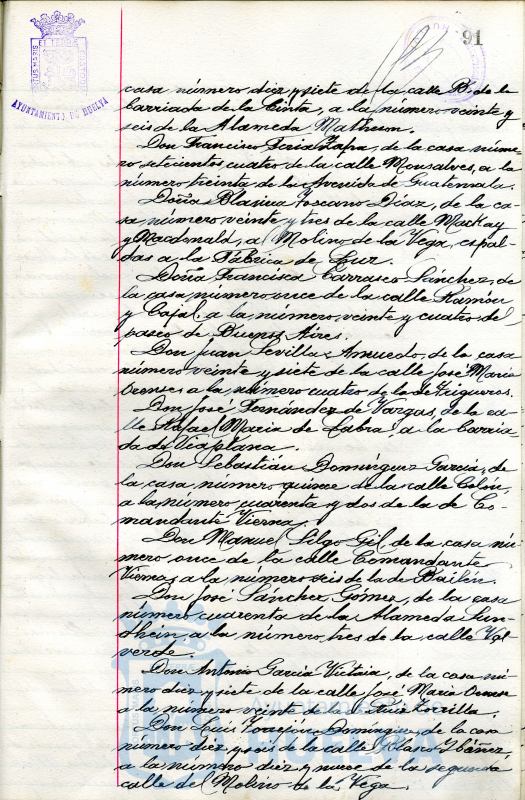 91
AYUNTAMIENTO DE HUELVA
casa número diez y siete de la calle B, de la
barriada de la Cinta, a la número veinte y
seis de la Alameda Matheson.
Don Francisco Feria Zafra, de la casa núme-
ro, setecientos cuatro de la calle Monsalves, a la
número treinta de la Avenida de Guatemala.
Doña Blasina Toscano Díaz, de la ca-
sa, número veinte y tres de la calle Mackay
y Macdonald, a Molino de la Vega, espal-
das a la Fábrica de Luz.
Doña Francisca Carrasco Sánchez, de
la casa número once de la calle Ramón
y Cajal, a la número, veinte y cuatro del
paseo de Buenos Aires.
Don Juan Sevilla Amuedo, de la casa
número veinte y siete de la calle José María
Orense, a la número cuatro de la de Trigueros.
Don José Fernández de Vargas, de la ca-
lle Rafael María de Labra, a la barria-
da de Viaplana.
Don Sebastián Domínguez García, de
la casa, número quince de la calle Colón,
a la, número, cuarenta y dos de la de Co-
mandante Vierna.
Don Manuel Silgo Gil, de la casa nú-
mero once de la calle Comandante
Vierna, a la número seis de la de Bailén.
Don José Sánchez Gómez, de la casa
número cuarenta de la Alameda Sun-
dheim, a la número, tres de la calle Val-
verde.
Don Antonio García de la casa nú-
mero diez y siete de la calle José María Orense
a la número veinte de la de Ruiz Zorrilla.
Don Luis Domínguez, de la casa
número diez y seis de la calle Ibáñez,
a la número diez y nueve de la segunda
calle del Molino de la Vega.